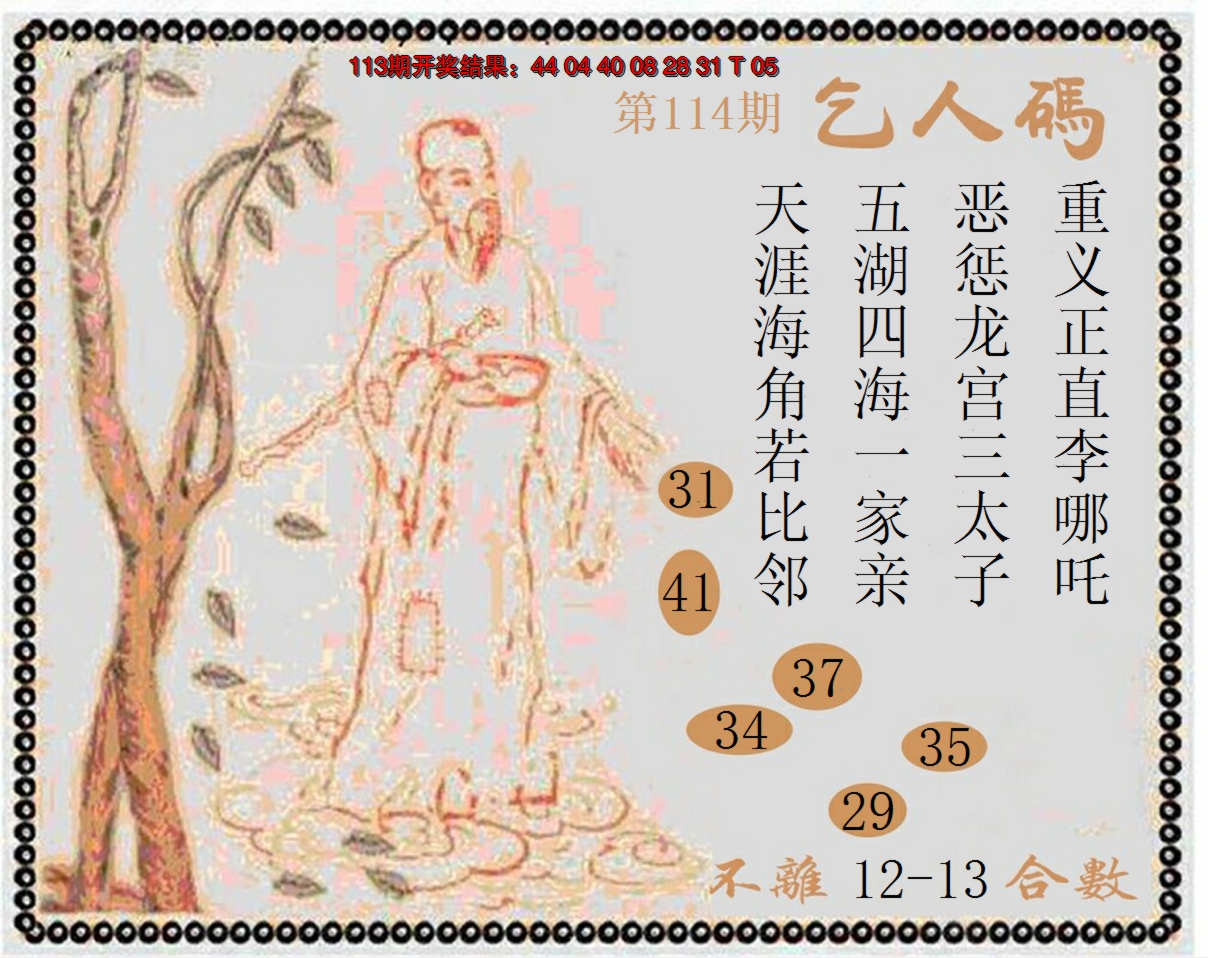 113期开奖结果：44 04 40 08 28 31 T 05
第114期 乞人碼
重义正直李哪吒
恶惩龙宫三太子
五湖四海一家亲
天涯海角若比邻
31
41
37
34
35
29
不離 12-13 合數